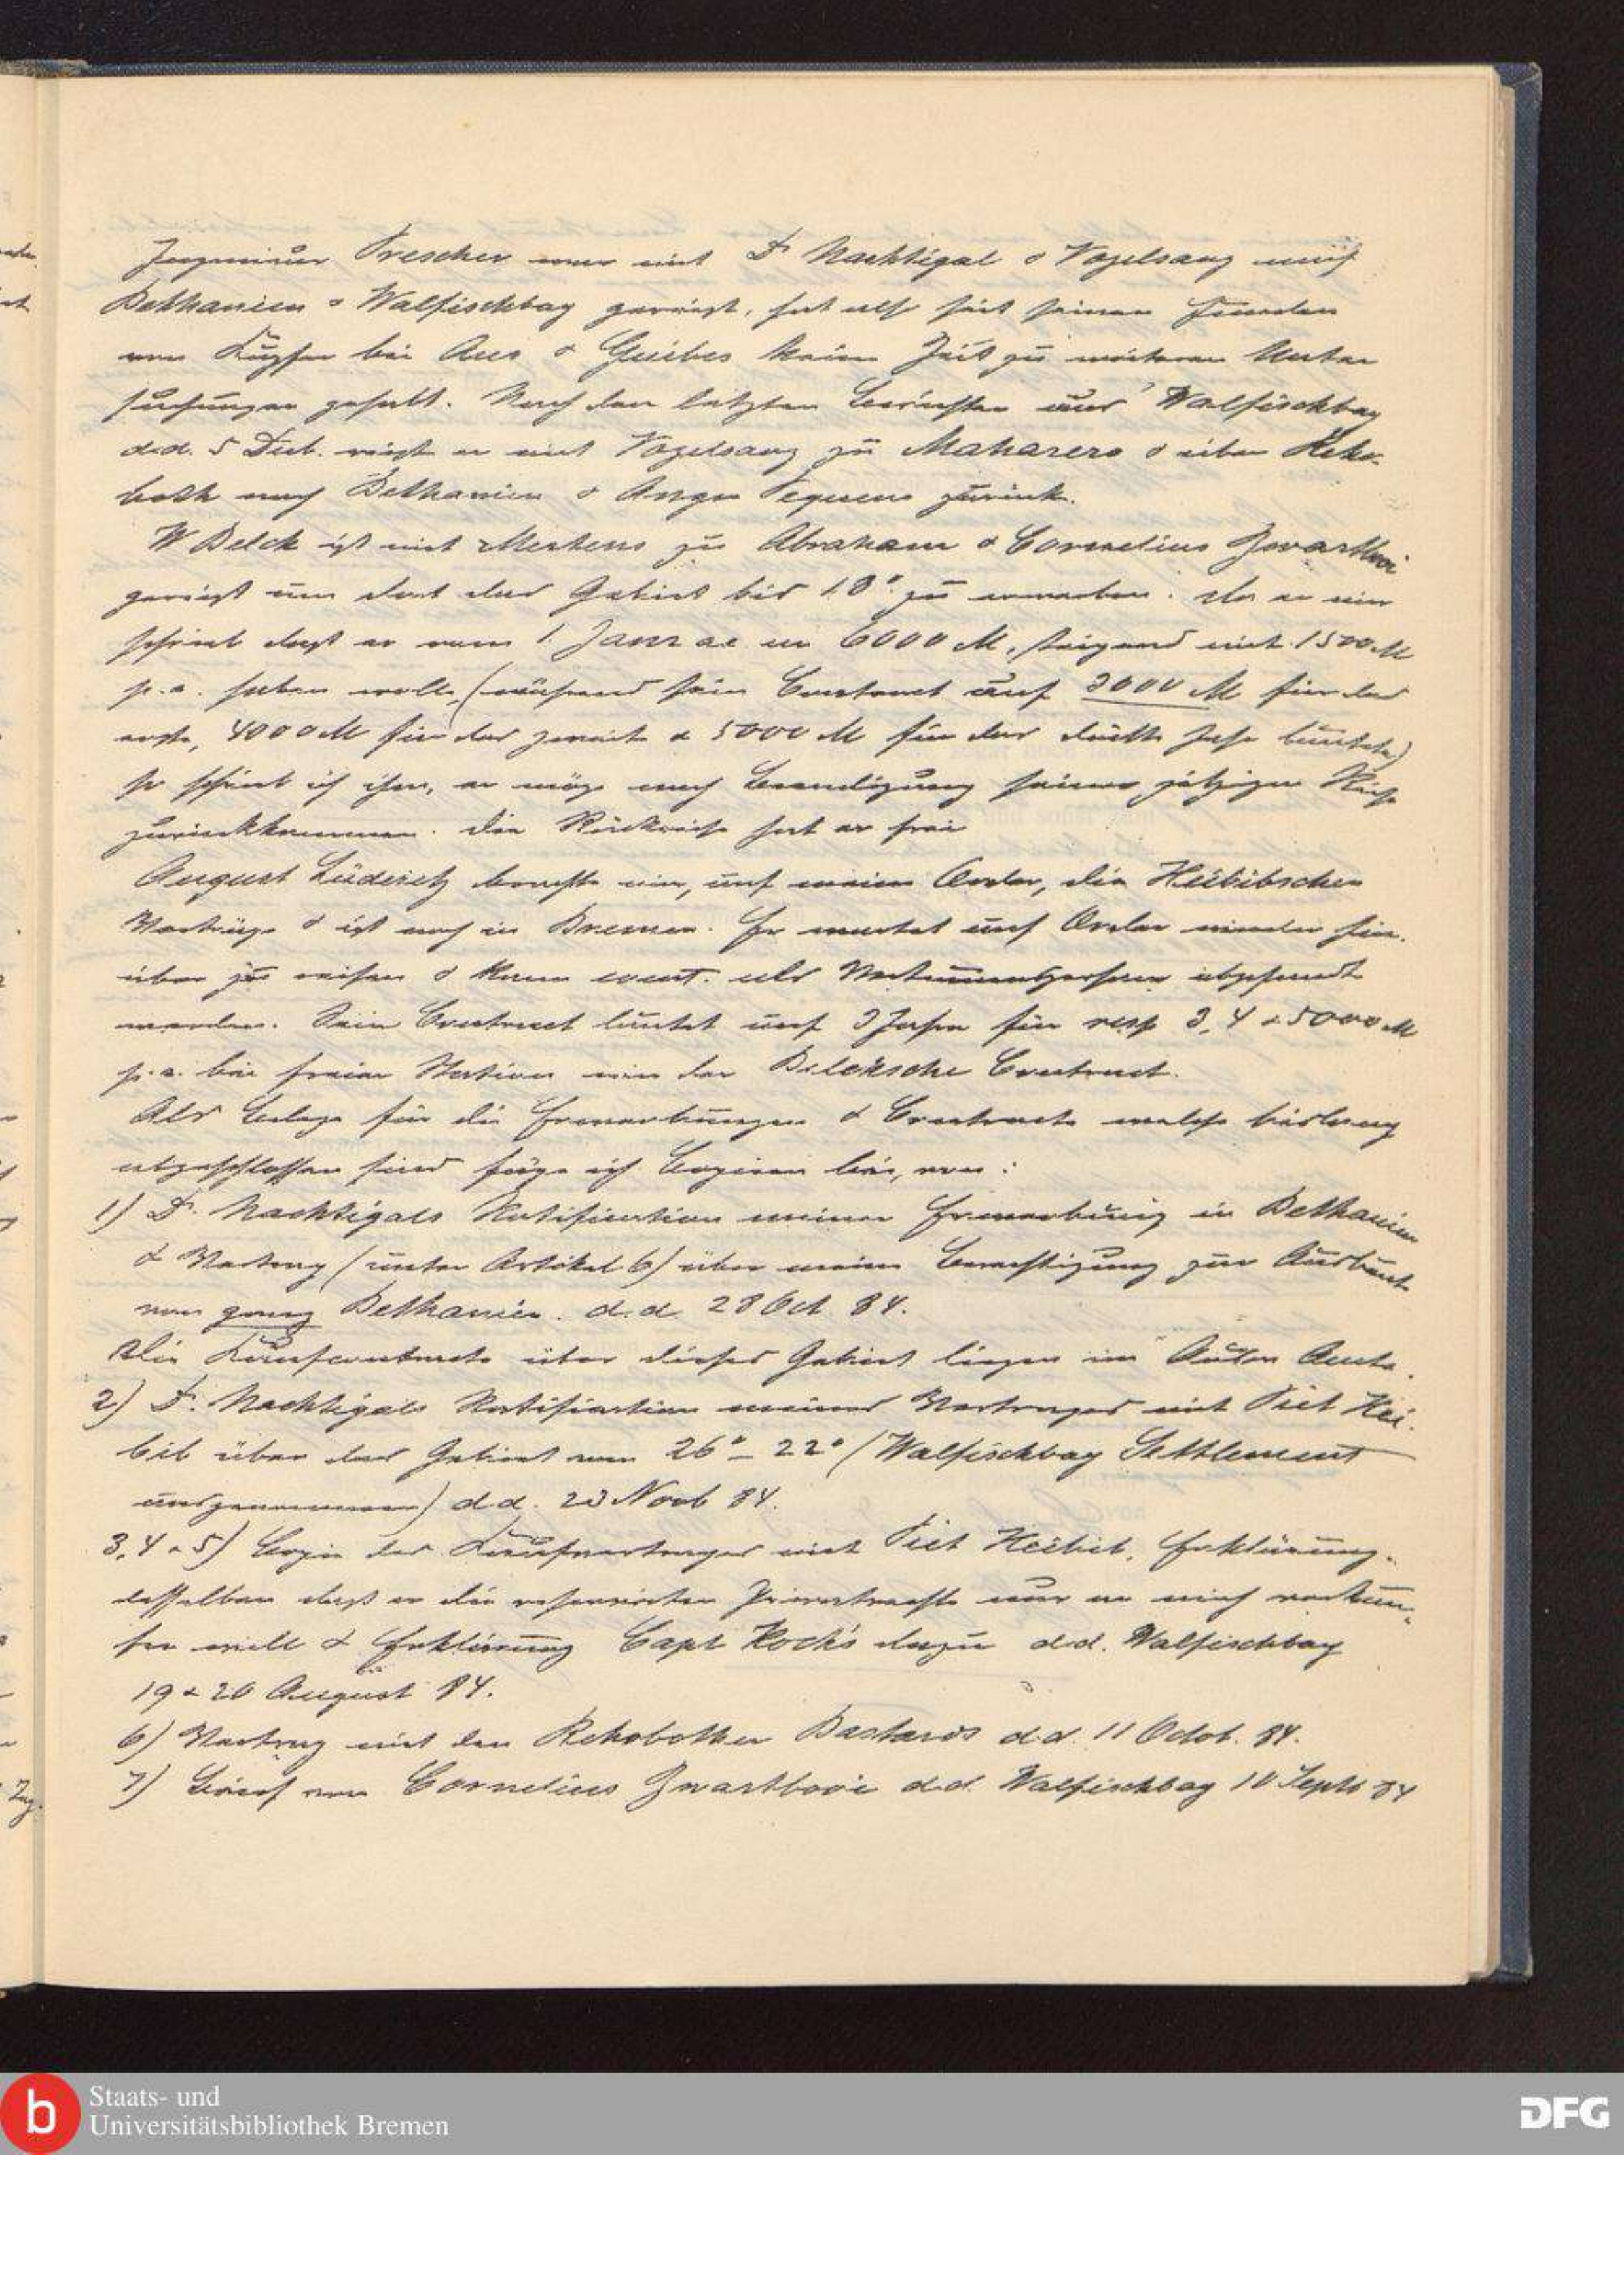 Ingenieur Prescher war mit Dr Nachtigal & Vogelsang nach
Bethanien & Walfischbay gereist, hat also seit seinen Funden
von Kupfer bei Aus & Guibes keine Zeit zu weiteren Unter
suchungen gehabt. Nach den letzten Berichten aus Walfischbay
d.d. 5 Decb. reist er mit Vogelsang zu Maharero & über Reho-
both nach Bethanien & Angra Pequena zurück.
W Belck ist mit Mertens zu Abraham & Cornelius Zwartboi
gereist um dort das Gebiet bis 18° zu erwerben. Da er mir
schrieb dass er vom 1. Janr a.c. an 6000 M, steigend mit 1500 M
p.a. haben wolle, (während sein Contract auf 3000 M für das
erste, 4000 M für das zweite & 5000 M für das dritte Jahr lautete)
so schrieb ich ihm, er möge nach Beendigung seiner jetzigen Reise
zurückkommen. Die Rückreise hat er frei
August Lüderitz brachte mir, auf meine Order, die Heibibschen
Verträge & ist noch in Bremen. Er wartet auf Order wieder hin-
über zu reisen & kann event. als Vertrauensperson abgesandt
werden. Sein Contract lautet auf 3 Jahre für resp 3, 4 & 5000 M
p.a. bei freier Station wie der Belcksche Contract.
Als Belege für die Erwerbungen & Contracte welche bislang
abgeschlossen sind füge ich Copieen bei, von:
1) Dr. Nachtigals Ratification meiner Erwerbung in Bethanien
& Vertrag (unter Artikel 6) über meine Berechtigung zur Ausbeute
von ganz Bethanien. d.d. 28 Oct. 84.
Die Kaufcontracte über dieses Gebiet liegen im Ausw Amte.
2) Dr. Nachtigals Ratification meines Vertrages mit Piet Hei-
bib über das Gebiet vom 26° – 22° (Walfischbay Settlement
ausgenommen) d.d. 23 Novb 84.
3, 4 & 5) Copie des Kaufvertrages mit Piet Heibib, Erklärung
desselben dass er die reservirten Privatrechte nur an mich verkau-
fen will & Erklärung Capt Hock's dazu d.d. Walfischbay
19 & 20 August 84.
6) Vertrag mit den Rehobother Bastards d.d. 11 Octob. 84.
7) Brief von Cornelius Zwartbooi d.d. Walfischbay 10 Septb 84
Staats- und
Universitätsbibliothek Bremen
DFG